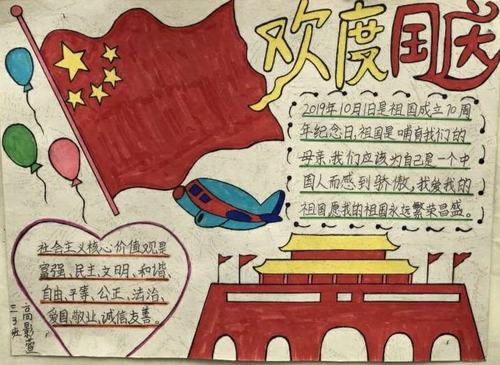 欢度国庆
2019年10月1日是祖国成立70周
年纪念日,祖国是哺育我们的
母亲,我们应该为自己是一个中
国人而感到骄傲,我爱我的
祖国愿我的祖国永远繁荣昌盛。
社会主义核心价值观是
富强、民主、文明、和谐、
自由、平等、公正、法治、
爱国、敬业、诚信、友善。
三3班
高影萱